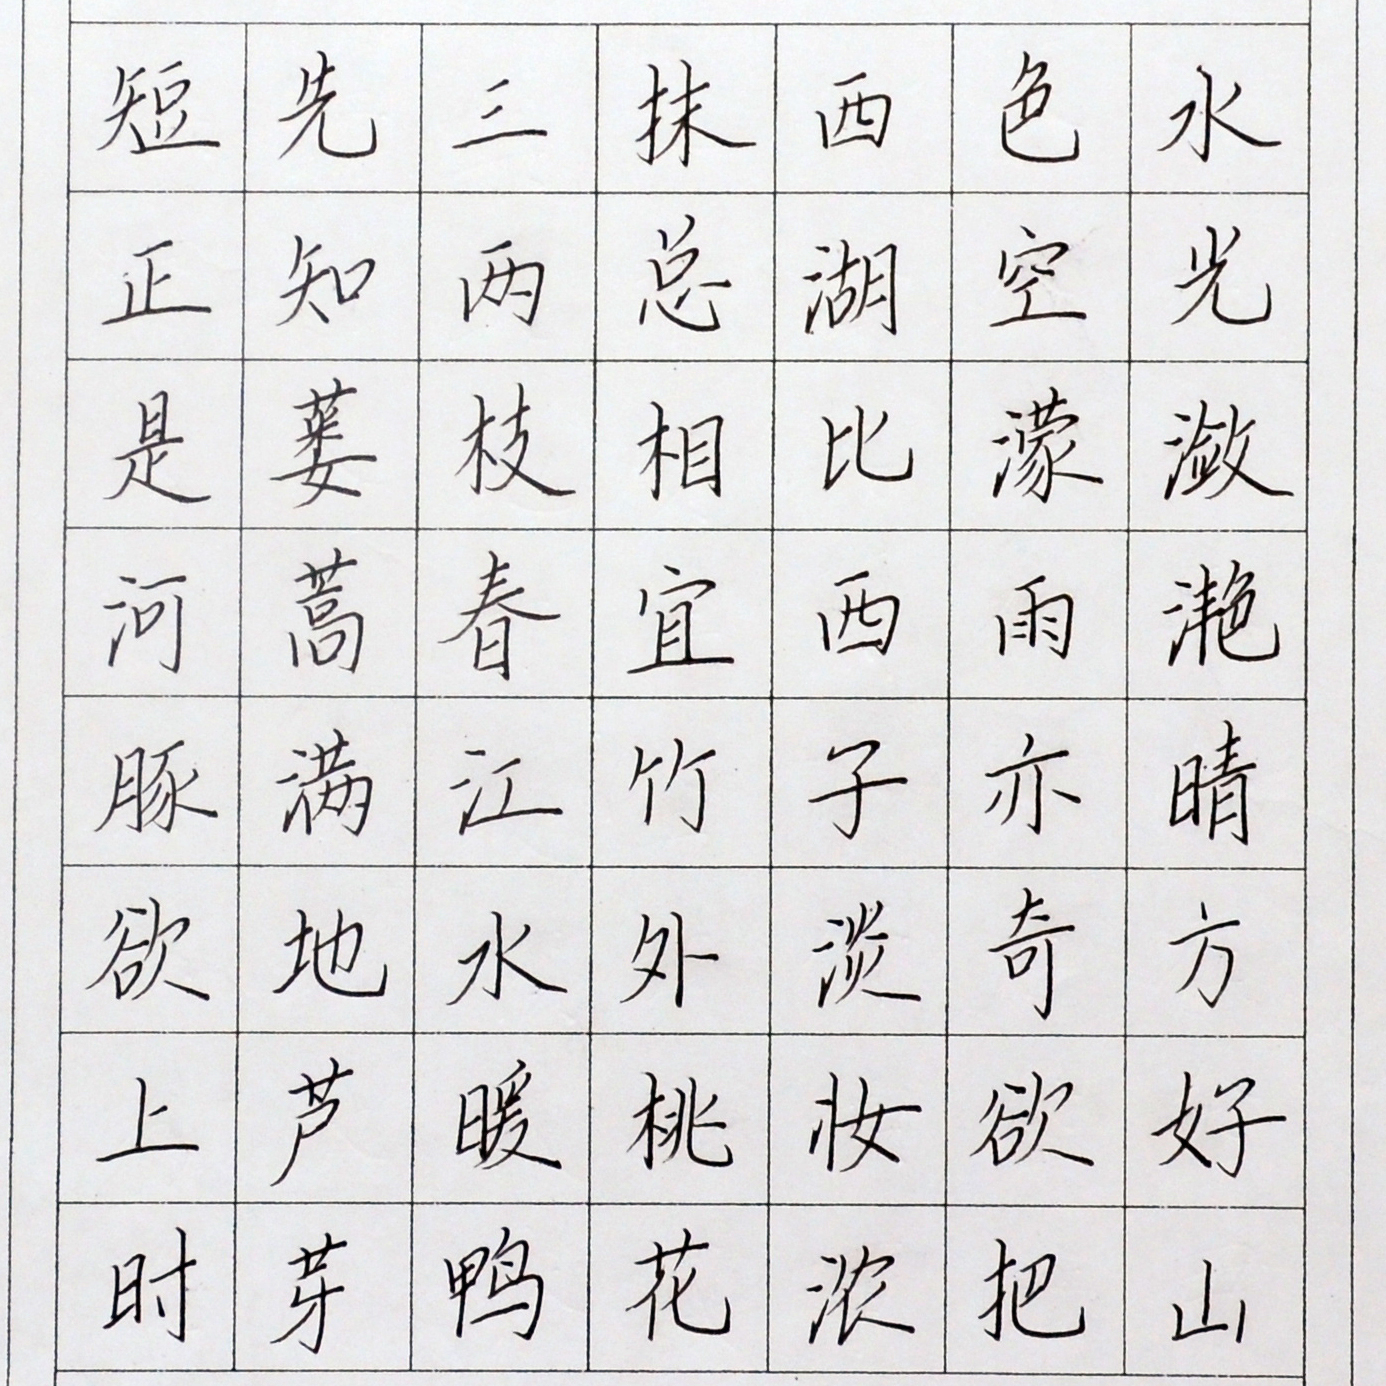 水光潋滟晴方好山
色空濛雨亦奇欲把
西湖比西子淡妆浓
抹总相宜竹外桃花
三两枝春江水暖鸭
先知蒌蒿满地芦芽
短正是河豚欲上时